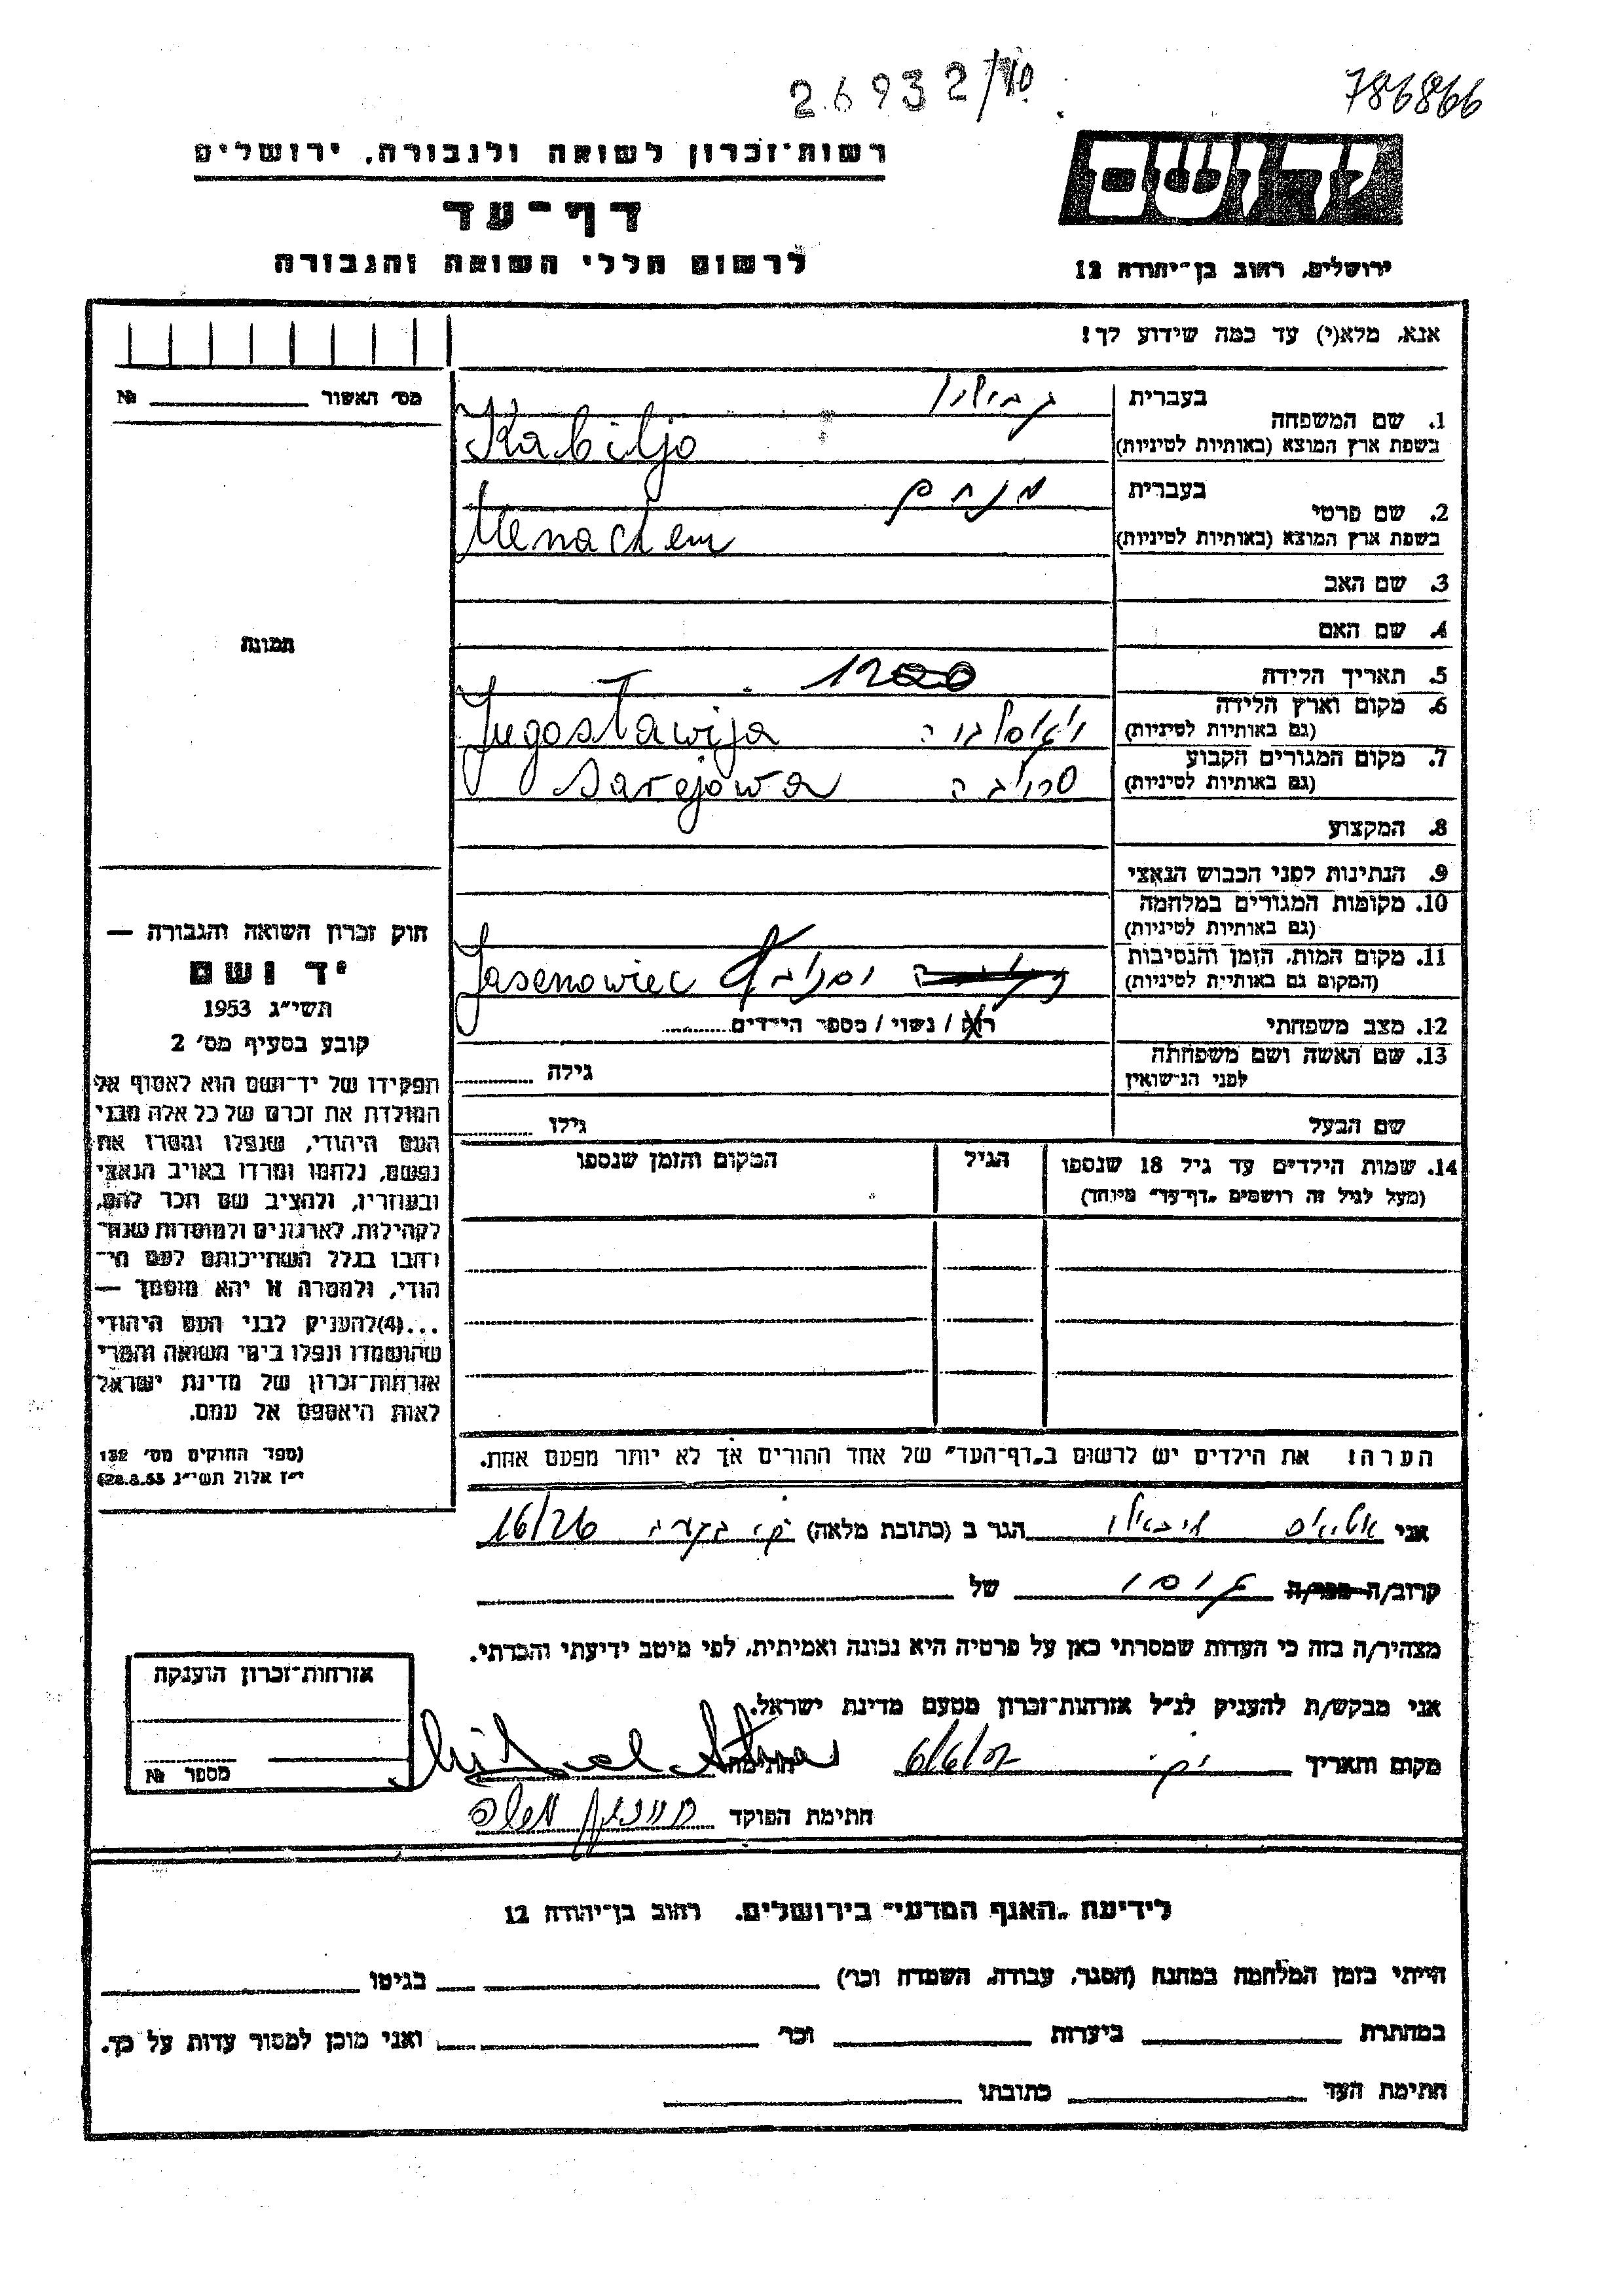 26932/10
786866
יד ושם
ירושלים, רחוב בן־יהודה 12
רשות־זכרון לשואה ולגבורה, ירושלים
דף־עד
לרשום חללי השואה והגבורה
אנא, מלא(י) עד כמה שידוע לך!
מס׳ האשור №
1. שם המשפחה
בעברית
בשפת ארץ המוצא (באותיות לטיניות)
Kabiljo
2. שם פרטי
בעברית מנחם
בשפת ארץ המוצא (באותיות לטיניות)
Menachem
3. שם האב
4. שם האם
תמונה
5. תאריך הלידה
6. מקום וארץ הלידה
(גם באותיות לטיניות)
Jugostawija
7. מקום המגורים הקבוע
(גם באותיות לטיניות)
Sarejowa
8. המקצוע
9. הנתינות לפני הכבוש הנאצי
10. מקומות המגורים במלחמה
(גם באותיות לטיניות)
11. מקום המות, הזמן והנסיבות
(המקום גם באותיות לטיניות)
Jasenowiec
12. מצב משפחתי
רוק / נשוי / מספר הילדים
13. שם האשה ושם משפחתה
לפני הנישואין
גילה
שם הבעל
גילו
14. שמות הילדים עד גיל 18 שנספו
(מעל לגיל זה רושמים „דף־עד" מיוחד)
הגיל
המקום והזמן שנספו
חוק זכרון השואה והגבורה —
יד ושם
תשי״ג 1953
קובע בסעיף מס׳ 2
תפקידו של יד־ושם הוא לאסוף אל
המולדת את זכרם של כל אלה מבני
העם היהודי, שנפלו ומסרו את
נפשם, נלחמו ומרדו באויב הנאצי
ובעוזריו, ולהציב שם וזכר להם,
לקהילות, לארגונים ולמוסדות שנח־
רחבו בגלל השתייכותם לעם הי־
הודי, ולמטרה זו יהא מוסמך —
...(4)להעניק לבני העם היהודי
שהושמדו ונפלו בימי השואה והמרי
אזרחות־זכרון של מדינת ישראל
לאות היאספם אל עמם.
(ספר החוקים מס׳ 132
י״ז אלול תשי״ג 28.8.53)
הערה! את הילדים יש לרשום ב„דף־העד" של אחד ההורים אך לא יותר מפעם אחת.
אני הגר ב (כתובת מלאה) 16/26
קרוב/ה מכר/ה של
מצהיר/ה בזה כי העדות שמסרתי כאן על פרטיה היא נכונה ואמיתית, לפי מיטב ידיעתי והכרתי.
אני מבקש/ת להעניק לנ״ל אזרחות־זכרון מטעם מדינת ישראל.
מקום ותאריך 6/6/02 חתימה
חתימת הפוקד
אזרחות־זכרון הוענקה
מספר №
לידיעת „האגף המדעי" בירושלים. רחוב בן־יהודה 12
הייתי בזמן המלחמה במחנה (הסגר, עבודה, השמדה וכו׳) בגיטו
במחתרת ביערות וכו׳ ואני מוכן למסור עדות על כך.
חתימת העד כתובתו